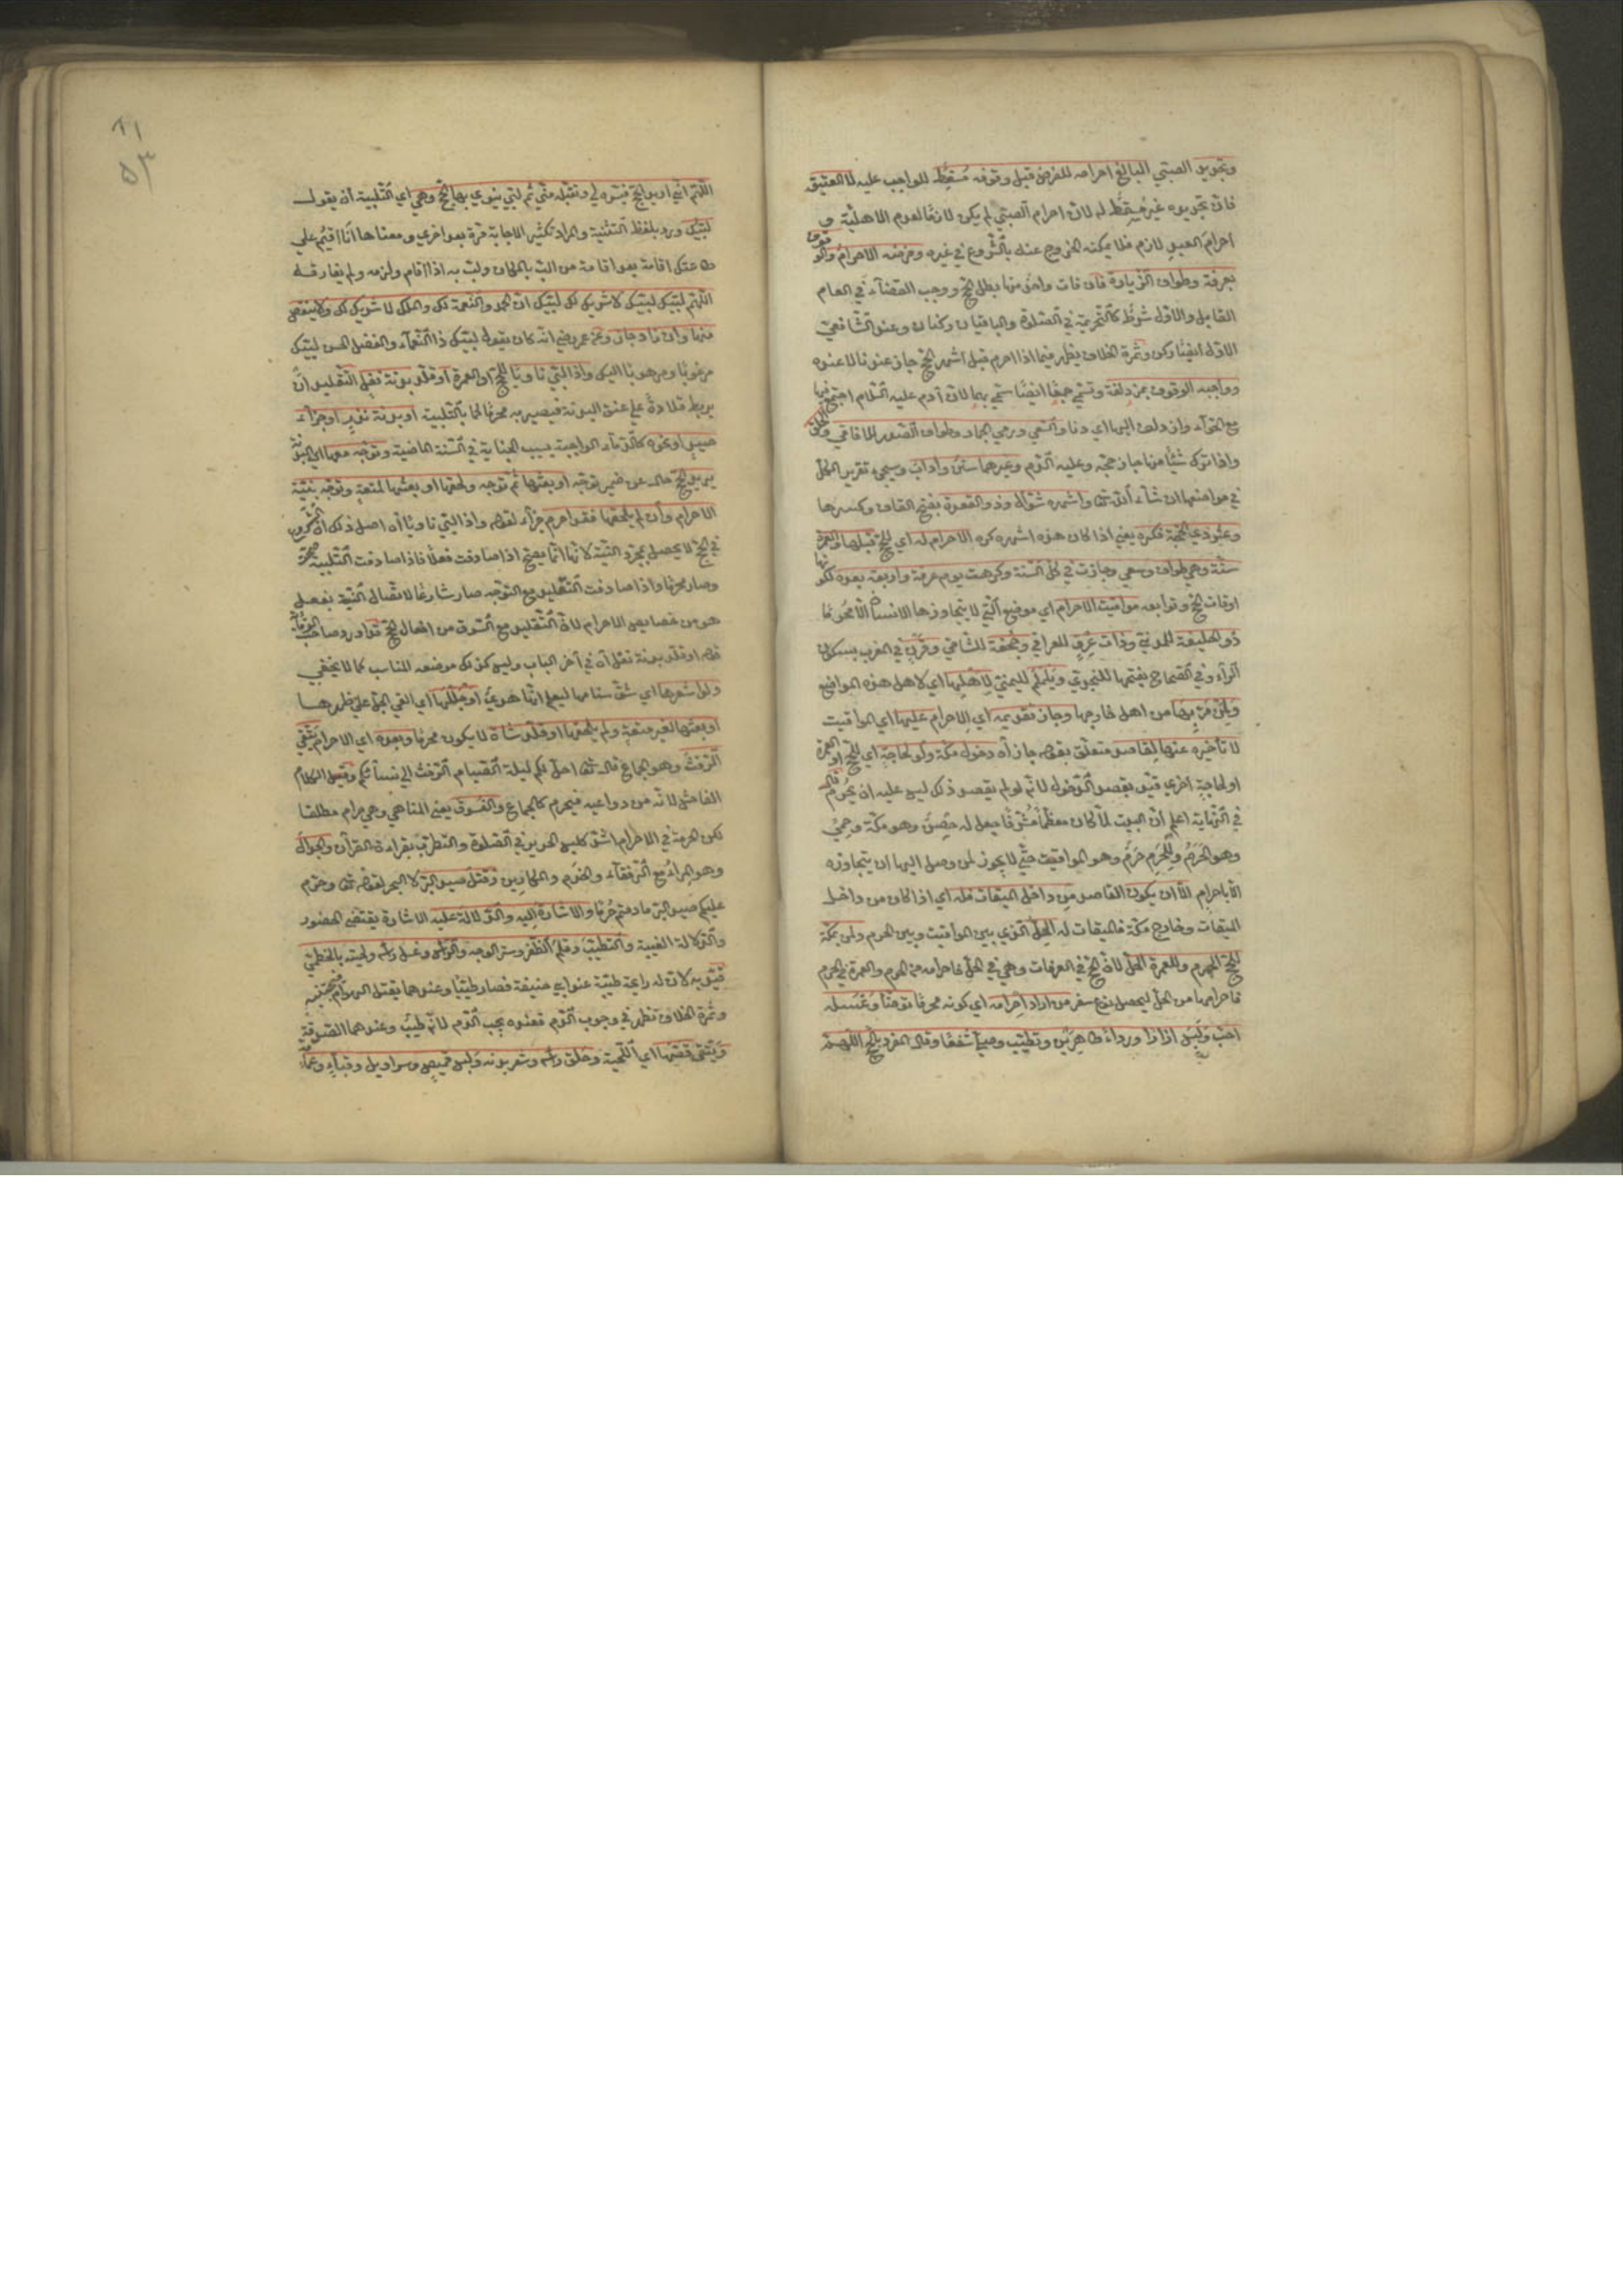 وتجديد الصبي البالغ احرامه للفرض قبل وقوفه مسقط للواجب عليه لا العتيق
فان تجديده غير مسقط له لان احرام الصبي لم يكن لازما لعدم الاهلية و
احرام العبد لازم فلا يمكنه الخروج عنه بالشروع في غيره وفرضه الاحرام والوقوف
بعرفة وطواف الزيارة فان فات واحد منها بطل الحج ووجب القضاء في العام
القابل والاول شرط كالتحريمة في الصلوة والباقيان ركنان وعند الشافعي
الاول ايضا ركن وثمرة الخلاف يظهر فيما اذا احرم قبل اشهر الحج جاز عندنا لا عنده
وواجبه الوقوف بمزدلفة وتسمى جمعا ايضا سمي بهما لان آدم عليه السلام اجتمع فيها
مع حواء وازدلف اليها اي دنا والسعي ورمي الجمار وطواف الصدر للافاقي والحلق
واذا ترك شيئا منها جاز حجه وعليه الدم وغيرهما سنن واداب وسيجيء تقرير الكل
في مواضعها ان شاء الله تعالى واشهره شوال وذو القعدة بفتح القاف وكسرها
وعشر ذي الحجة فكره يعني اذا كان هذه اشهره كره الاحرام له اي للحج قبلها والعمرة
سنة وهي طواف وسعي وجازت في كل السنة وكرهت يوم عرفة واربعة بعده لكونها
اوقات الحج وتوابعه مواقيت الاحرام اي موضع التي لا يتجاوزها الانسان الا محرما
ذو الحليفة للمدني وذات عرق للعراقي وجحفة للشامي وقرن في المغرب بسكون
الراء وفي الصحاح بفتحها للنجدي ويلملم لليمني لاهلها اي لاهل هذه المواضع
ولمن مر بها من اهل خارجها وجاز تقديمه اي الاحرام عليها اي المواقيت
لا تأخيره عنها لقاصد متعلق بقوله جاز آه دخول مكة ولو لحاجة اي للحج او العمرة
او لحاجة اخرى قيد بقصد الدخول لانه لو لم يقصد ذلك ليس عليه ان يحرم قال
في النهاية اعلم ان البيت لما كان معظما مشرفا جعل له حصن وهو مكة وحمى
وهو الحرم وللحرم حرم وهو المواقيت حتى لا يجوز لمن وصل اليها ان يتجاوزه
الا باحرام الا ان يكون القاصد من داخل الميقات فله اي اذا كان من داخل
الميقات وخارج مكة فالميقات له الحل الذي بين المواقيت وبين الحرم ولمن بمكة
للحج الحرم وللعمرة الحل لان الحج في العرفات وهي في الحل فاحرامه من الحرم والعمرة في الحرم
فاحرامها من الحل ليحصل نوع سفر من اراد احرامه اي كونه محرما توضأ وغسله
احب ولبس ازارا ورداء طاهرين وتطيب وصلى شفعا وقال المفرد بالحج اللهم
٨١
٥٣
اللهم اني اريد الحج فيسره لي وتقبله مني ثم لبى ينوي بها الحج وهي اي التلبية ان يقول
لبيك ورد بلفظ التثنية والمراد تكثير الاجابة مرة بعد اخرى ومعناها انا اقيم على
طاعتك اقامة بعد اقامة من الب بالمكان ولب به اذا اقام ولزمه ولم يفارقه
اللهم لبيك لبيك لا شريك لك لبيك ان الحمد والنعمة لك والملك لا شريك لك ولا ينقص
منها وان زاد جاز وعن عمر رضي انه كان يقول لبيك ذا النعماء والفضل الحسن لبيك
مرغوبا ومرهوبا اليك واذا لبى ناويا للحج او العمرة او قلد بدنة نفل التقليد ان
يربط قلادة على عنق البدنة فيصير به محرما كما بالتلبية او بدنة نذر او جزاء
صيد او نحوه كالدماء الواجبة بسبب الجناية في السنة الماضية وتوجه معها اي البدنة
يريد الحج حال عن ضمير توجه او بعثها ثم توجه ولحقها او بعثها لمتعة وتوجه بنية
الاحرام وان لم يلحقها فقد احرم جزاء لقوله واذا لبى ناويا آه اصل ذلك ان الشروع
في الحج لا يحصل بمجرد النية لانها انما يصح اذا صادفت فعلا فاذا صادفت التلبية صحت
وصار محرما واذا صادفت التقليد مع التوجه صار شارعا لاتصال النية بفعل
هو من خصايص الاحرام لان التقليد مع السوق من افعال الحج قد اورد صاحب الوقاية
قوله او قلد بدنة نفل آه في آخر الباب وليس كذلك موضعه المناسب كما لا يخفى
ولو اشعرها اي شق سنامها ليعلم انها هدي او جللها اي القى الجل على ظهرها
او بعثها لغير متعة ولم يلحقها او قلد شاة لا يكون محرما وبعده اي الاحرام يتقي
الرفث وهو الجماع قال تعالى احل لكم ليلة الصيام الرفث الى نسائكم وقيل الكلام
الفاحش لانه من دواعيه فيحرم كالجماع والفسوق يعني المناهي وهي حرام مطلقا
لكن الحرمة في الاحرام اشد كلبس الحرير في الصلوة والتطريب بقراءة القرآن والجدال
وهو المراء مع الرفقاء والخدم والمكارين وقتل صيد البر لا البحر لقوله تعالى وحرم
عليكم صيد البر ما دمتم حرما والاشارة اليه والدلالة عليه الاشارة يقتضي الحضور
والدلالة الغيبة والتطيب وقلم الظفر وستر الوجه والرأس وغسل رأسه ولحيته بالخطمي
قيد به لان له رايحة طيبة عند ابي حنيفة فصار طيبا وعندهما يقتل الهوام فيجتنبه
وثمرة الخلاف تظهر في وجوب الدم فعنده يجب الدم لانه طيب وعندهما الصدقة
ويتقي قصها اي اللحية وحلق رأسه وشعر بدنه ولبس قميص وسراويل وقباء وعمامة